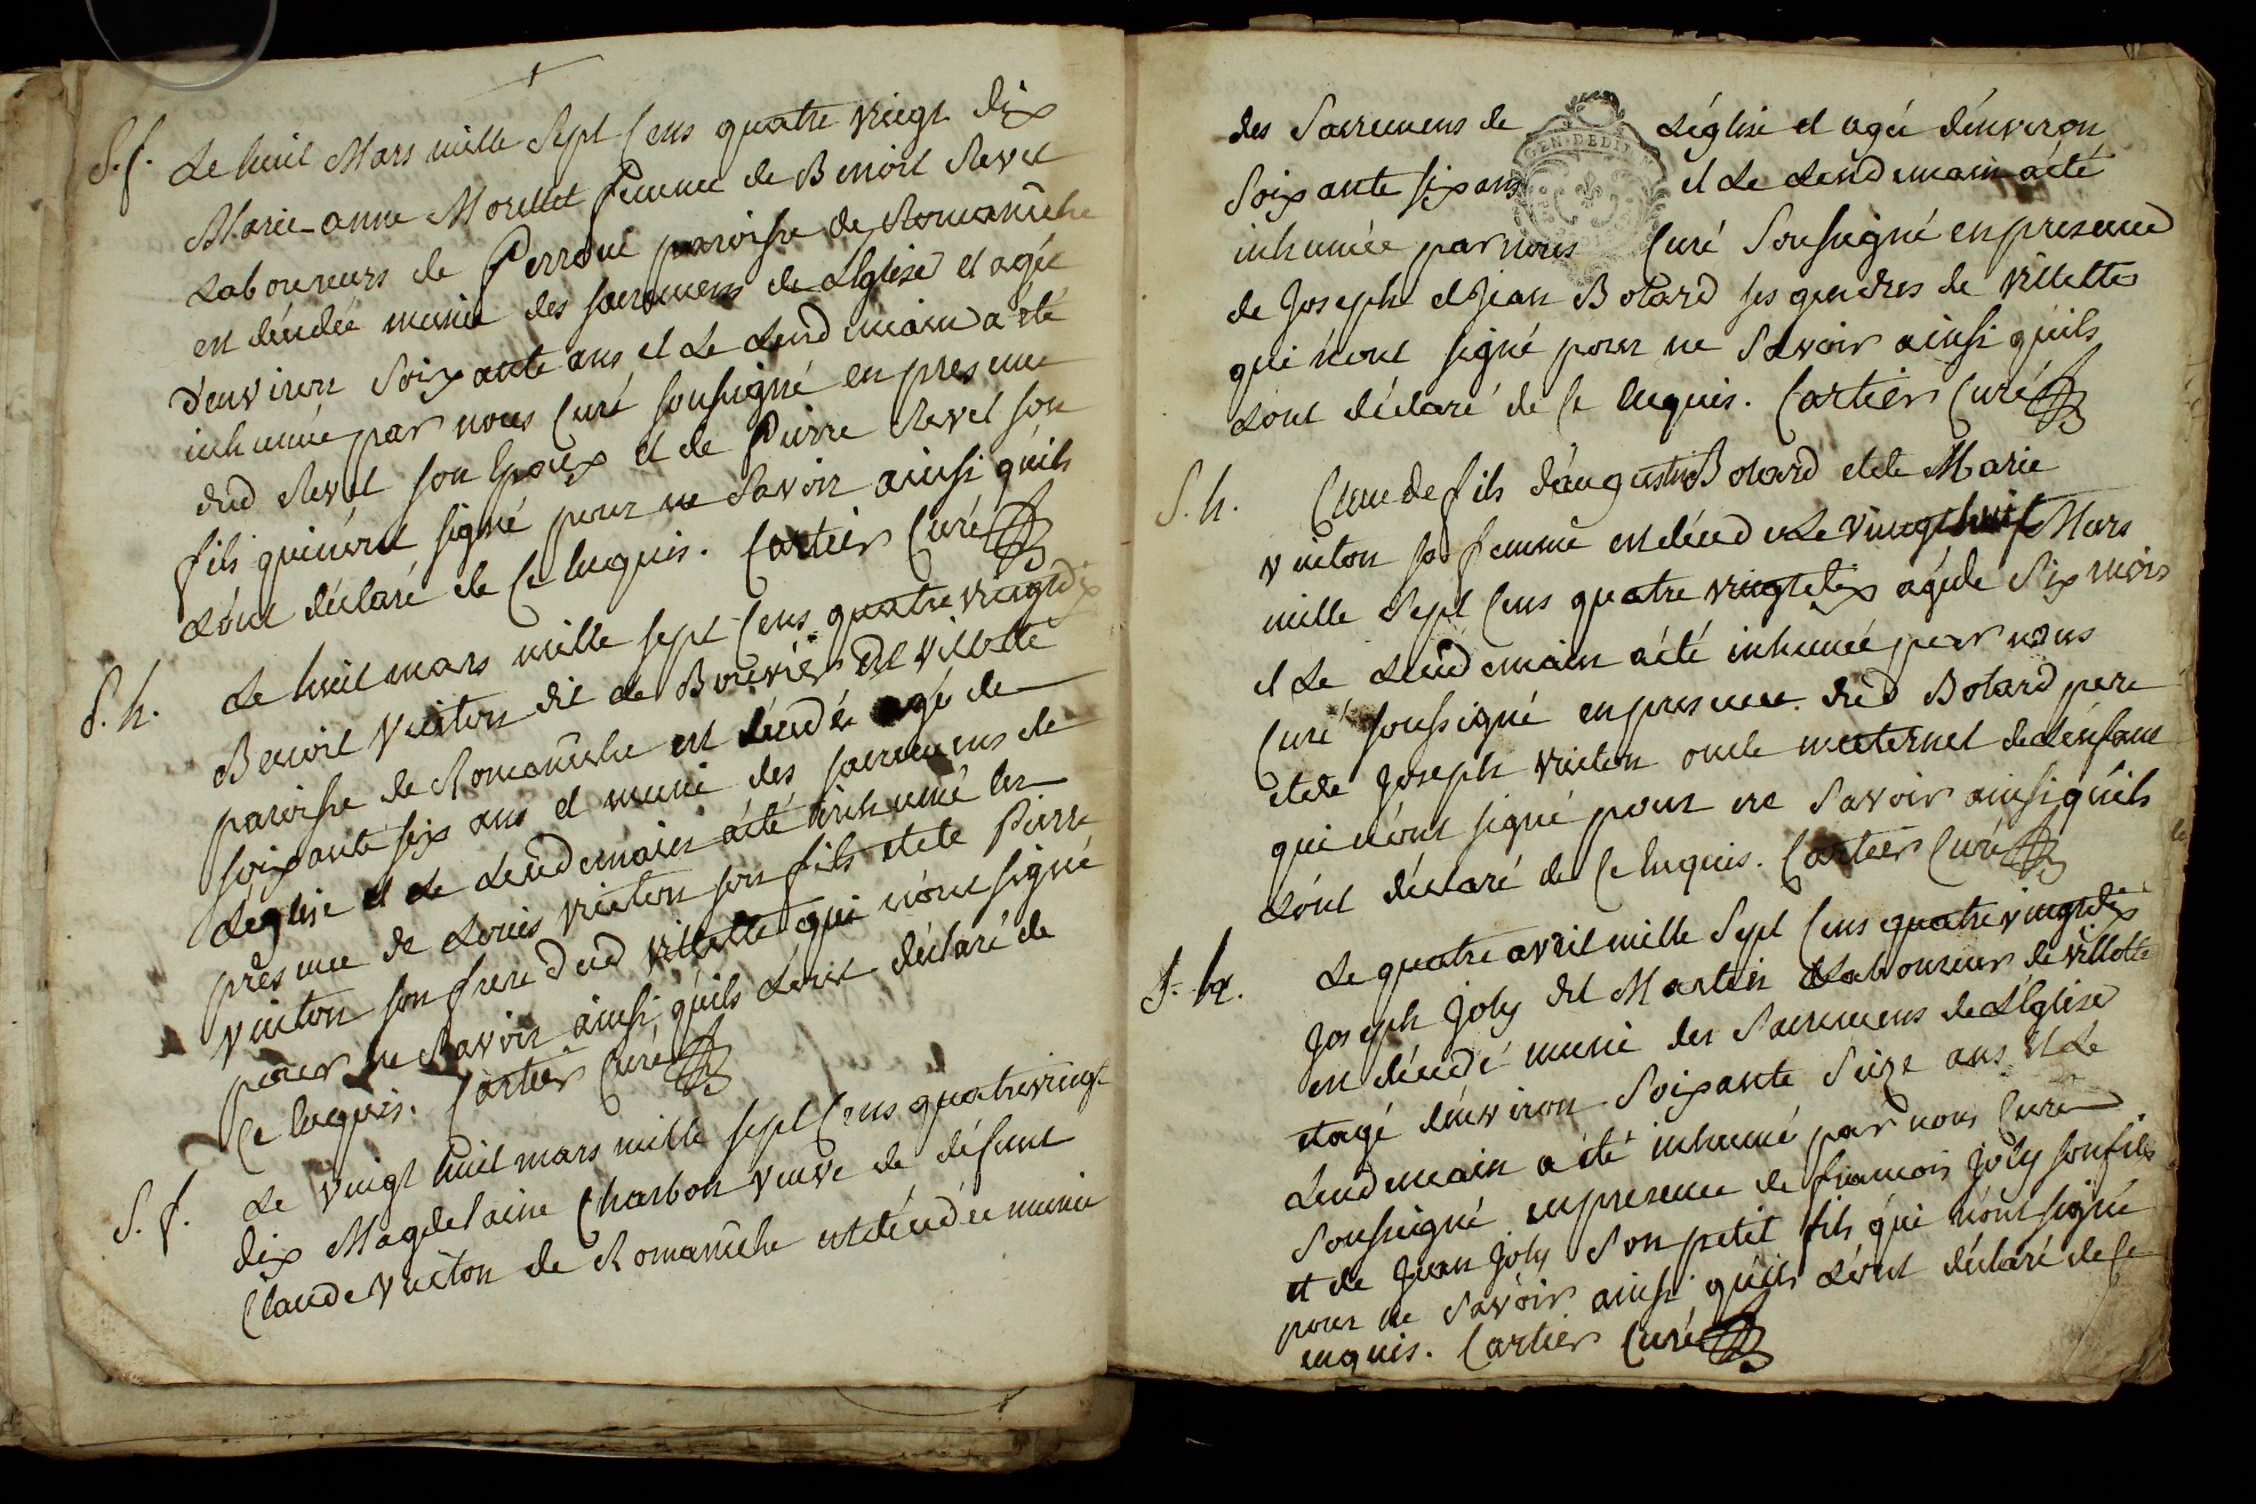 S. f. Le huit Mars mille Sept Cens quatre vingt dix
Marie-anne Morellet femme de Benoit Revel
Laboureurs de Perroné paroisse de Romanêche
est décédée munie des sacremens de L'église et agée
d'environ Soixante ans et Le Lend'emain a été
inhumée par nous Curé soussigné en presence
dud Revel son Epoux et de Pierre Revel son
fils qui n'ont signé pour ne Savoir ainsi qu'ils
L'ont déclaré de Ce Enquis. Cartier Curé
S. h. Le huit mars mille sept Cens quatre vingt dix
Benoit Vuiton dit de Bouvier de Villette
paroisse de Romanêche est décédé agé de
soixante six ans et muni des sacremens de
L'eglise et Le Lend'emain a été inhumé en
presence de Louis Vuiton son fils et de Pierre
Vuiton son frere dud villette qui n'ont signé
pour ne Savoir ainsi qu'ils L'ont déclaré de
Ce Enquis. Cartier Curé
S. f. Le vingt huit mars mille sept Cens quatre vingt
dix Magdelaine Charbon veuve de défunt
Claude Vuiton de Romanêche est décédée munie
des Sacremens de L'église et agée d'environ
Soixante six ans et Le Lend'emain a été
inhumée par nous Curé Soussigné en presence
de Joseph et Jean Botard ses gendres de villette
qui n'ont signé pour ne Savoir ainsi qu'ils
L'ont déclaré de Ce Enquis. Cartier Curé
GEN · DE DIJON
S. h. Claude fils d'augustin Botard et de Marie
vuiton sa femme est décédé Le vingt huit Mars
mille Sept Cens quatre vingt dix agé de Six mois
et Le Lend'emain a été inhumé par nous
Curé soussigné en presence dud Botard pere
et de Joseph vuiton oncle maternel de L'enfant
qui n'ont signé pour ne Savoir ainsi qu'ils
L'ont déclaré de Ce Enquis. Cartier Curé
S. h. Le quatre avril mille Sept Cens quatre vingt dix
Joseph Joly dit Martin Laboureur de villette
est décédé muni des Sacremens de L'église
et agé d'environ Soixante Seize ans et Le
Lend'emain a été inhumé par nous Curé
Soussigné en presence de francois Joly son fils
et de Jean Joly Son petit fils qui n'ont signé
pour ne Savoir ainsi qu'ils L'ont déclaré de Ce
enquis. Cartier Curé